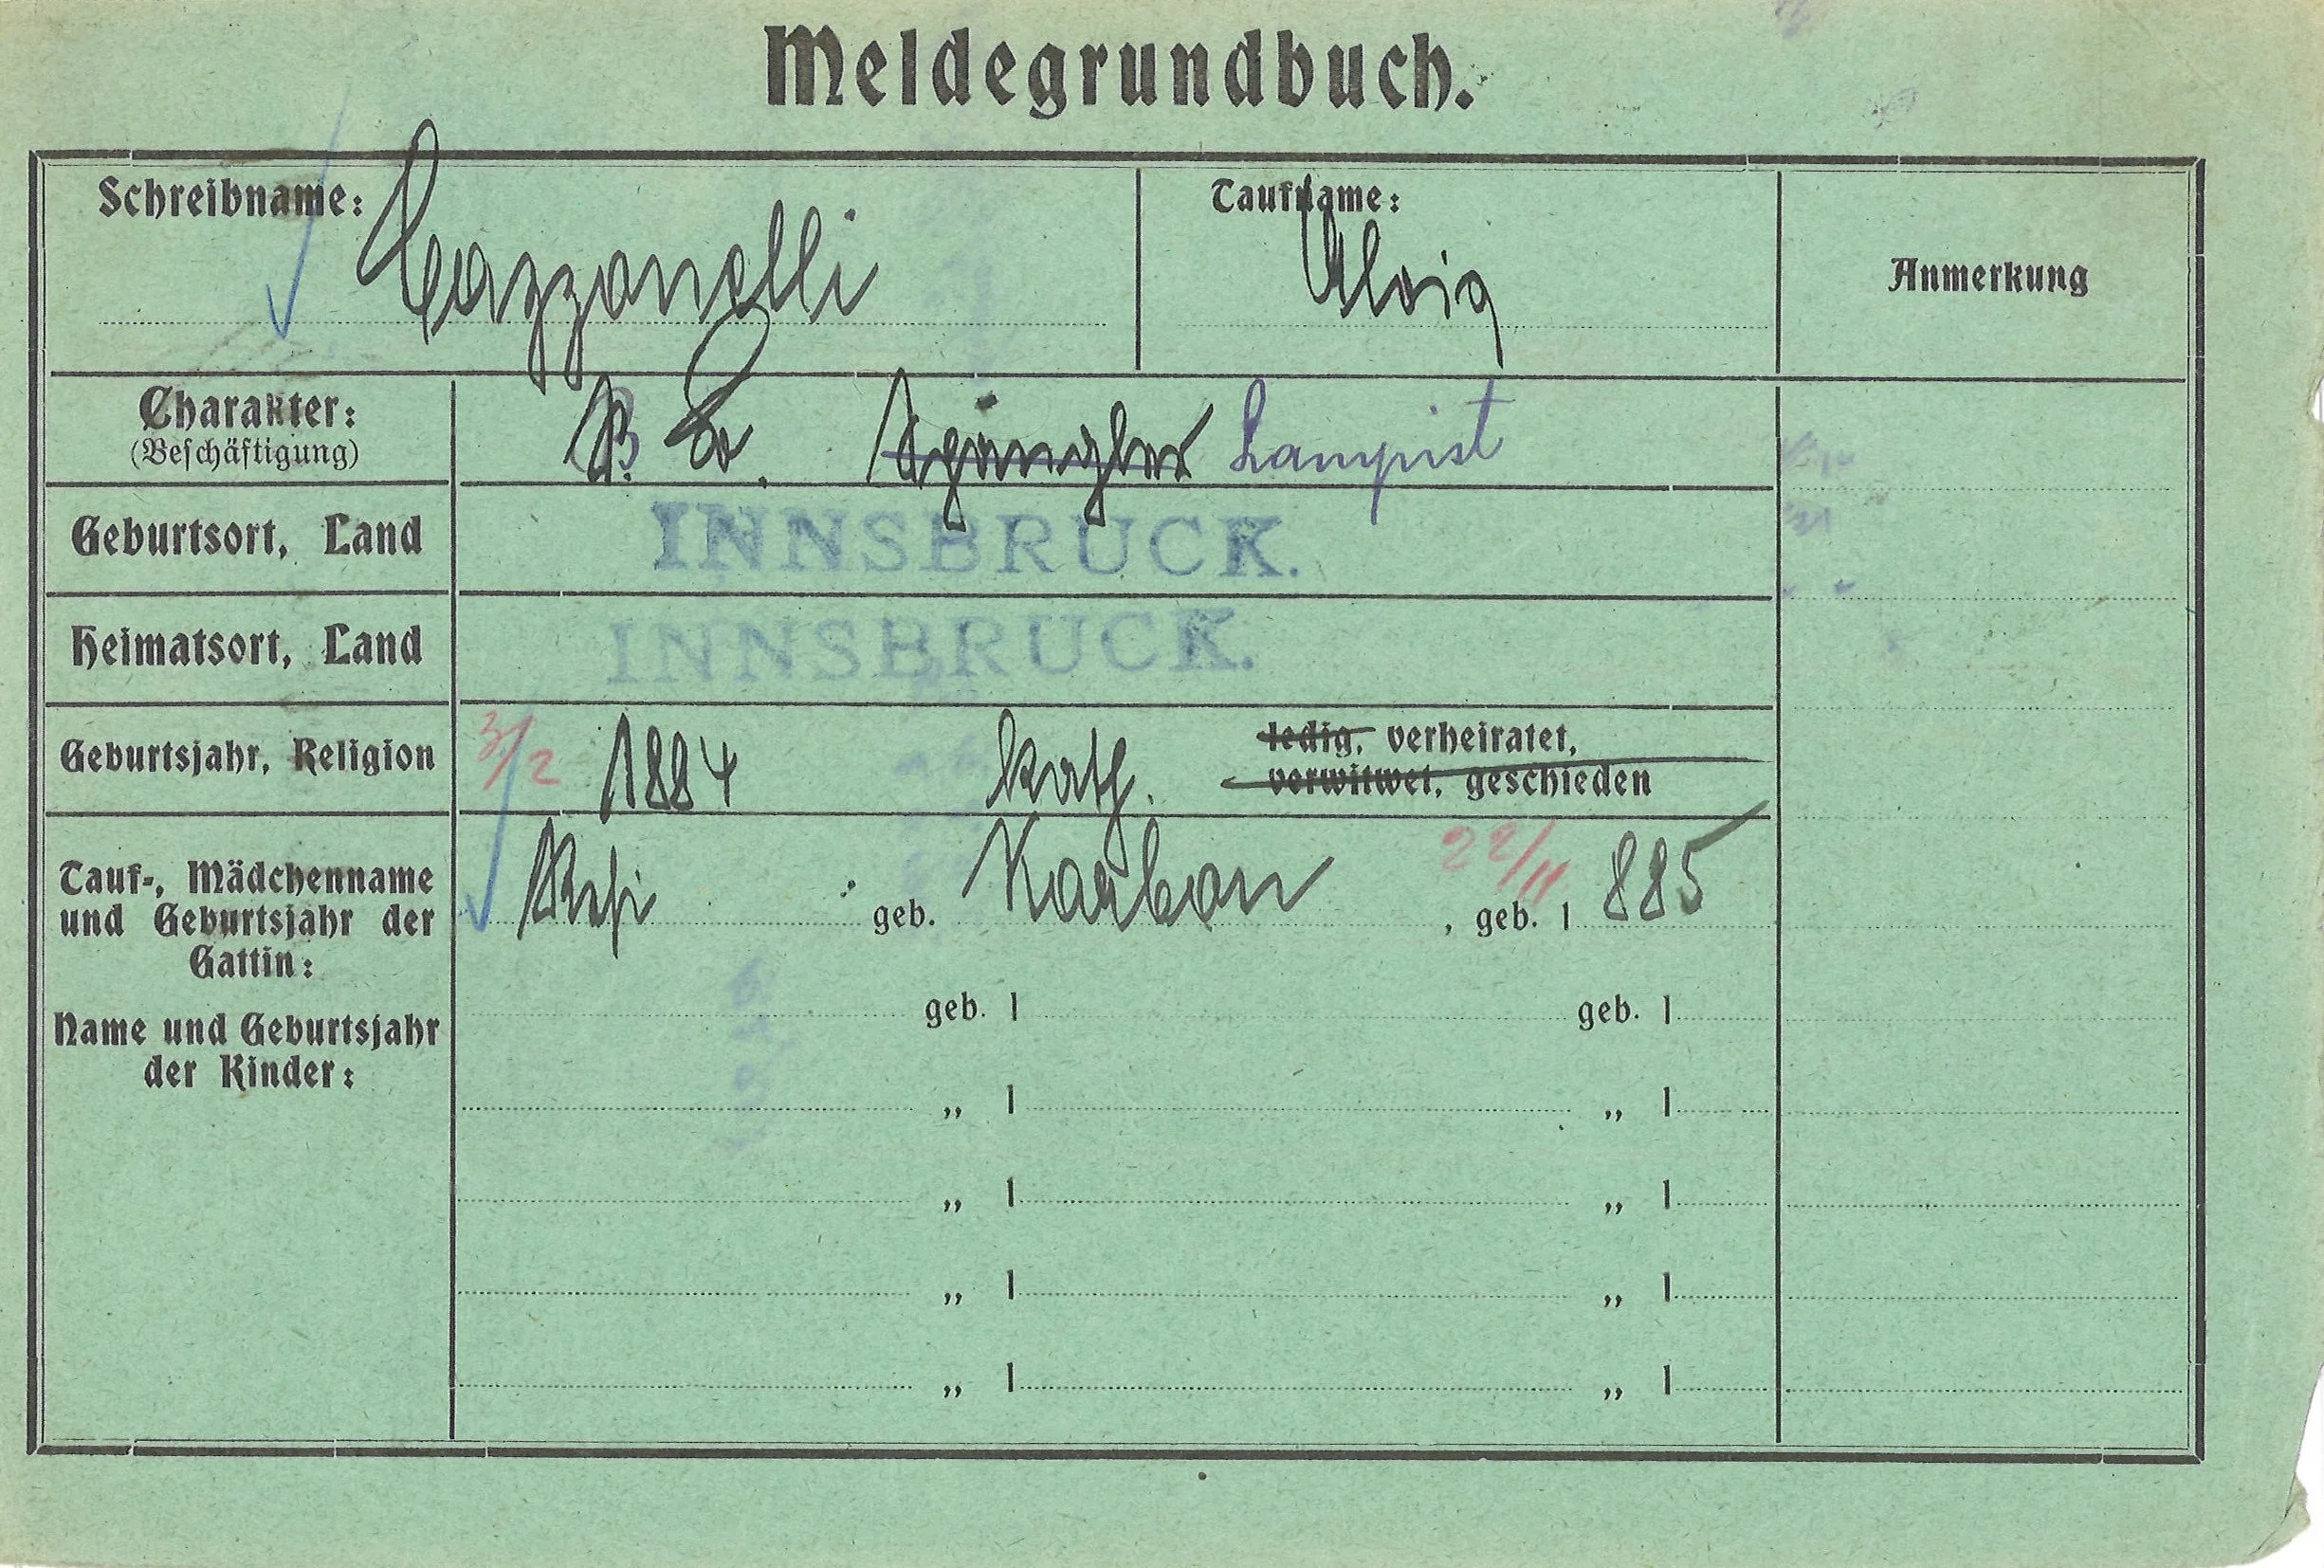 Meldegrundbuch.
Schreibname: Cazzanelli
Taufname: Alois
Anmerkung
Charakter: B. B. Spängler Lampist
(Beschäftigung)
Geburtsort, Land INNSBRUCK.
Heimatsort, Land INNSBRUCK.
Geburtsjahr, Religion 3/2 1884 kath. ledig, verheiratet,
verwitwet, geschieden
Tauf-, Mädchenname
und Geburtsjahr der
Gattin:
Resi geb. Karbon 22/11, geb. 1885
Name und Geburtsjahr
der Kinder:
geb. 1 geb. 1
„ 1 „ 1
„ 1 „ 1
„ 1 „ 1
„ 1 „ 1